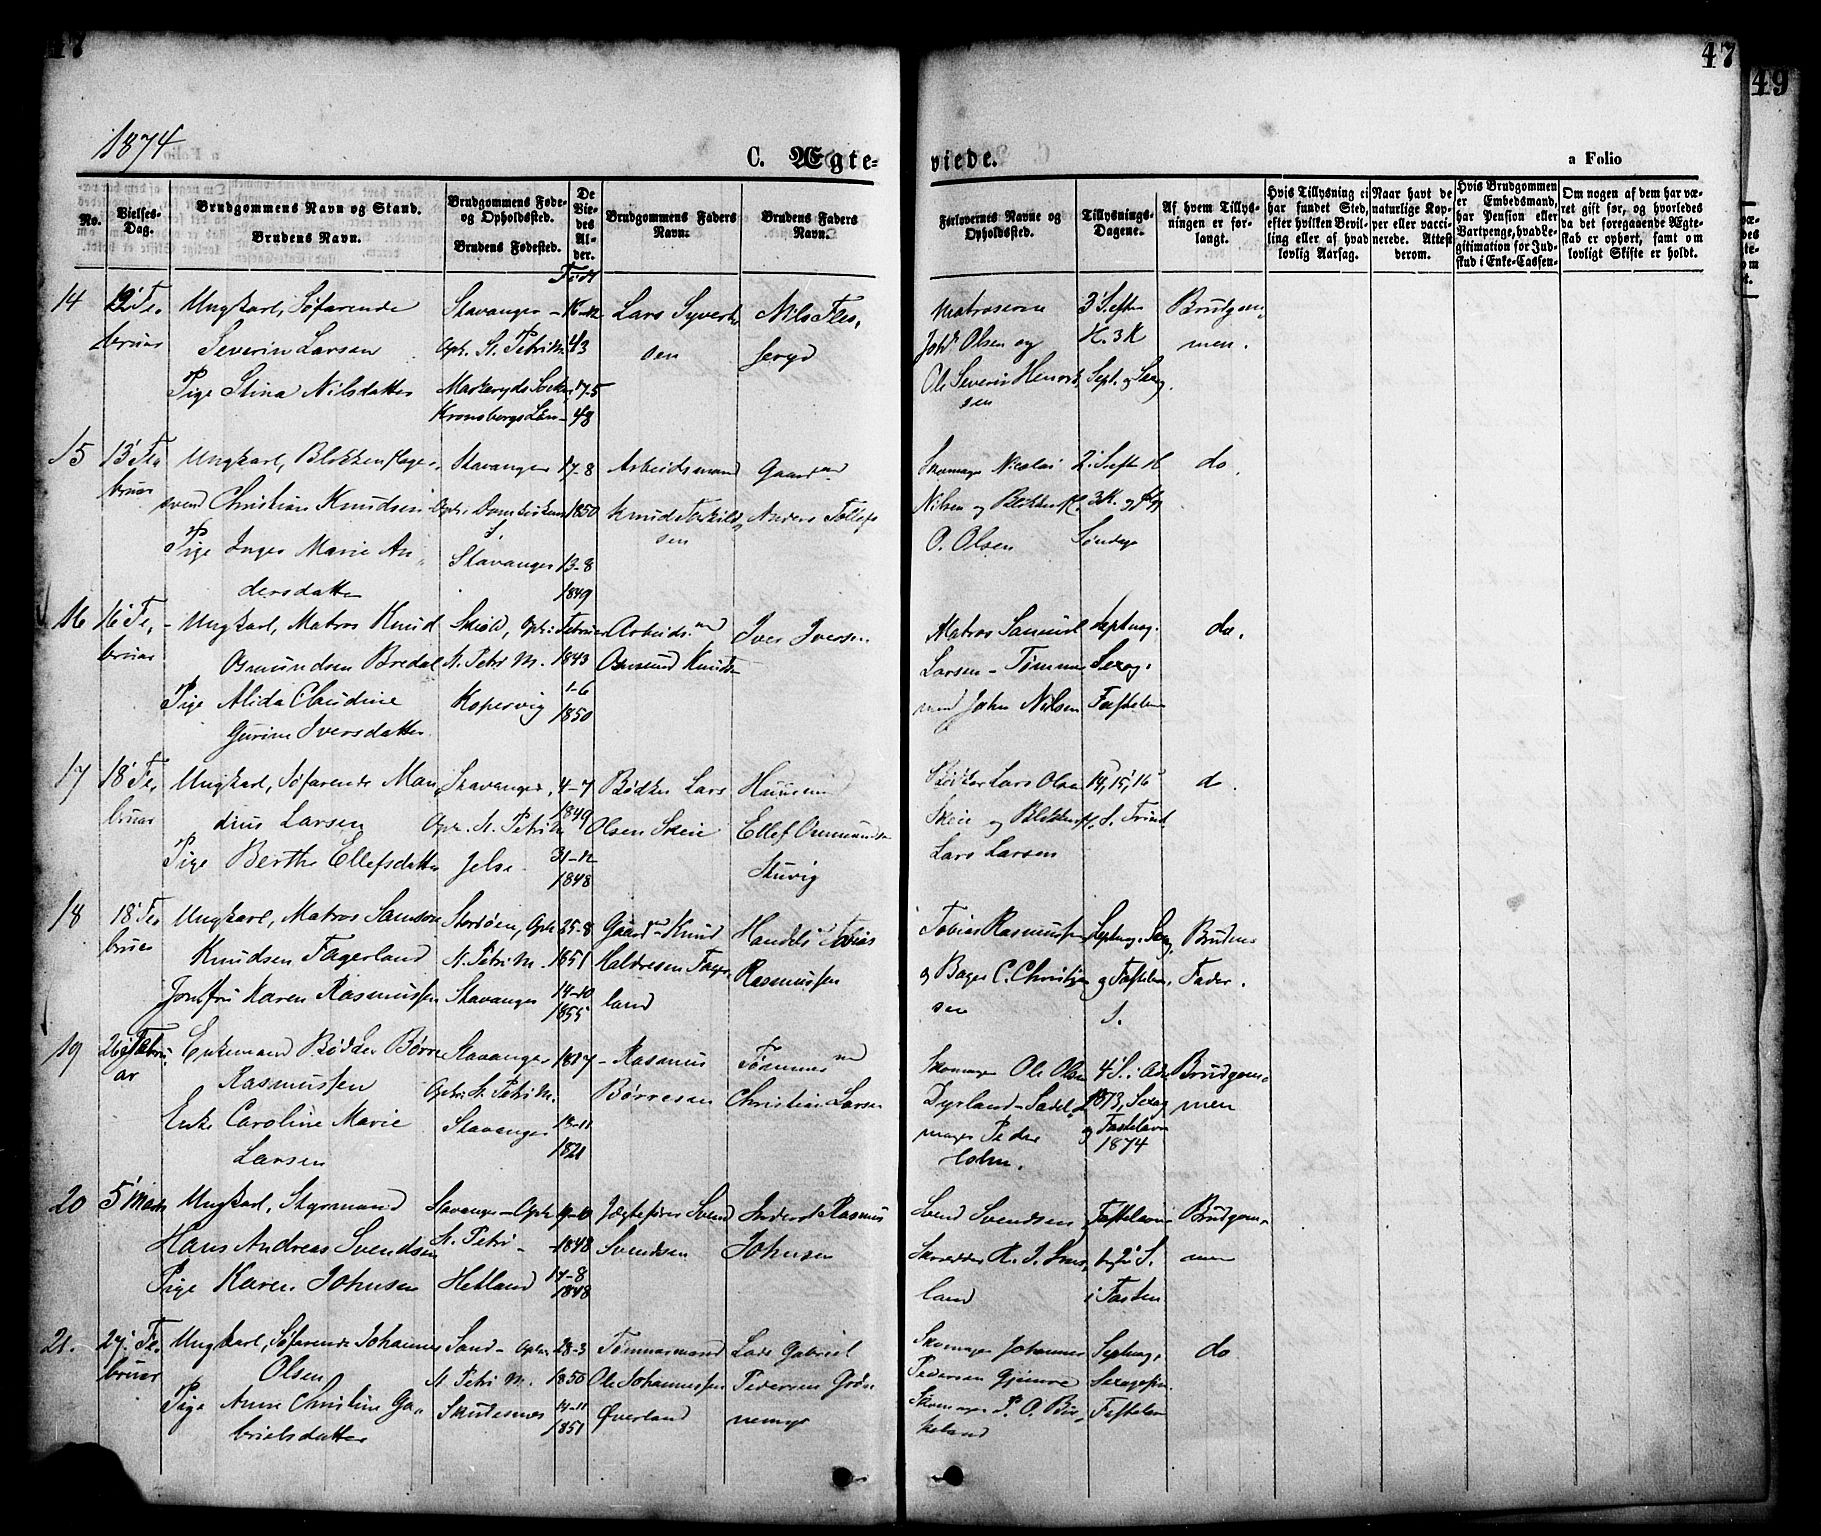 47
47
49
1874
C. Ægte-
viede.
a Folio
No.
Vielses-
Dag.
Brudgommens Navn og Stand.
Brudens Navn.
Brudgommens Føde-
og Opholdssted.
Brudens Fødested.
De
Vie-
des
Al-
der.
Født
Brudgommens Faders
Navn.
Brudens Faders
Navn.
Forlovernes Navne og
Opholdssted.
Tillysnings-
Dagene.
Af hvem Tillys-
ningen er for-
langt.
Hvis Tillysning ei
har fundet Sted,
efter hvilken Bevil-
ling eller af hvad
lovlig Aarsag.
Naar havt de
naturlige Kop-
per eller vacci-
nerede. Attest
derom.
Hvis Brudgommen
er Embedsmand,
har Pension eller
Vartpenge, hvad Le-
gitimation for Ind-
skud i Enke-Cassen.
Om nogen af dem har væ-
ret gift før, og hvorledes
da det foregaaende Ægte-
skab er ophørt, samt om
lovligt Skifte er holdt.
14
12' Fe-
bruar
Ungkarl, Søfarende
Severin Larsen
Pige Stina Nilsdatter
Stavanger
Oph. St. Petri M.
Markeryds Sokn
Kronobergs Län
16-12
43
17-5
48
Lars Syvert
sen
Nils Fles
seryd
Matroserne
Johs Olsen og
Ole Severin Henrik
sen
3' S. efter
H. 3 K
Sept. og Sexag.
Brudgom
men.
15
13' Fe
bruar
Ungkarl, Blokkemager
svend Christian Knudsen
Pige Inger Marie An
dersdatter
Stavanger
Oph. Domkirkens
Stavanger
17-8
1850
13-8
1849
Arbeidsmand
Knud Torkild
sen
Gaardmd
Anders Tollefs
Skomager Nicolai
Nilsen og
O. Olsen
2' S. efter H
3 K. og
Søndag
do.
16
16' Fe-
bruar
Ungkarl, Matros Knud
Osmundsen Bredal
Pige Alida Claudine
Gurine Iversdatter
Skiold, Oph.
St. Petri M.
Kopervig
Februar
1843
1-6
1850
Arbeidsmd
Osmund Knuds
Iver Iversen
Matros Samuel
Larsen - Tømmer
md John Nilsen
Septuag.
Sexag.
Fastelavn
do.
17
18' Fe.
bruar
Ungkarl, Søfarende Man
dius Larsen
Pige Berthe Ellefsdatter
Stavanger,
Oph. St. Petri M
Jelse
4-7
1849
31-12
1848
Bødker Lars
Olsen Skeie
Huusmd
Ellef Osmunds
Stuvig
Bødker Lars Olsen
Skeie og
Lars Larsen
14, 15, 16
S. Trinit
do.
18
18' Fe
bruar
Ungkarl, Matros Samson
Knudsen Fagerland
Jomfru Karen Rasmussen
Stordøen, Oph
St. Petri M.
Stavanger
25-8
1851
14-10
1855
Gaardmd Knud
Haldresen Fager
land
Handels Tobias
Rasmussen
Tobias Rasmussen
og Bager C. Christian
sen
Septuag. Sexag.
og Fastelavn.
S.
Brudens
Fader.
19
26' Febru
ar
Enkemand Bødker Børre
Rasmussen
Enke Caroline Marie
Larsen
Stavanger
Oph. St. Petri M.
Stavanger
1817
13-11
1821
Rasmus
Børresen
Tømmermd
Christian Larsen
Skomager Ole Olsen
Dyrland - Sadel
mager Peder
Holm.
4' S. i Adv
1873, Sexag
og Fastelavn
1874
Brudgom
men
20
5' Marts
Ungkarl, Styrmand
Hans Andreas Svendsen
Pige Karen Johnsen
Stavanger - Oph
St. Petri
Hetland
9-10
1848
17-8
1848
Jægtefører Svend
Svendsen
Inderst Rasmus
Johnsen
Svend Svendsen
Skrædder R. J.
land
Fastelavn
2' S.
i Fasten
Brudgom
men
21.
27' Fe.
bruar
Ungkarl, Søfarende Johannes
Olsen
Pige Anne Christine Ga
brielsdatter
Sand - Oph
St. Petri M.
Skudesnes
28-3
1850
14-11
1851
Tømmermand
Ole Johannessen
Øverland
Lods Gabriel
Pedersen
Skomager Johannes
Pedersen
Skomager P. O. Bir
keland
Septuag,
Sexagesim
Fastelavn
do